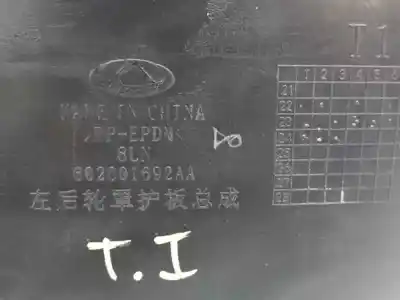 T1
1 2 3 4 5 6
21
22
23
24
25
26
27
28
MADE IN CHINA
PP-EPDM
8LN
602001692AA
左后轮罩护板总成
T.I